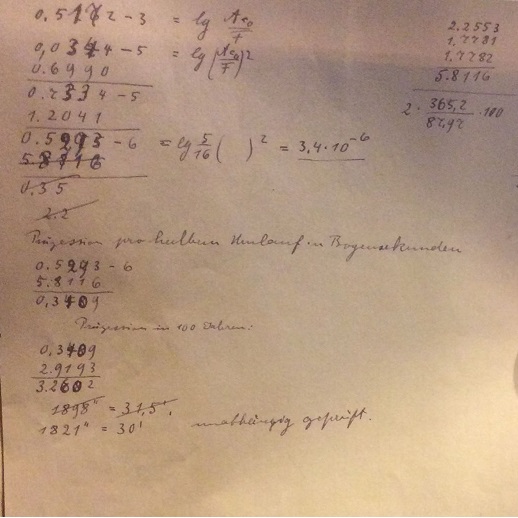 0.5172 - 3 = lg
2.2553
0,0344 - 5 = lg
1.7781
0.6990
1.7782
0.7334 - 5
5.8116
1.2041
2 · 365,2 / 87,97 · 100
0.5293 - 6 = lg 5/16 ( )² = 3,4·10⁻⁶
5.8116
0.35
2.2
Präzession pro halben Umlauf in Bogensekunden
0.5293 - 6
5.8116
0,3409
Präzession in 100 Jahren:
0,3409
2.9193
3.2602
1898" = 31,5'.
1821" = 30' unabhängig geprüft.